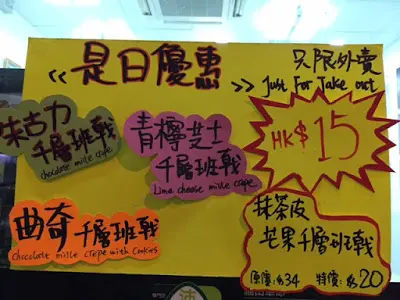 << 是日優惠 >>
只限外賣
Just For Take out
朱古力
千層班戟
chocolate mille crepe
青檸芝士
千層班戟
Lime cheese mille crepe
HK$15
曲奇千層班戟
Chocolate mille crepe with Cookies
抹茶皮
芒果千層班戟
原價:$34 特價:$20